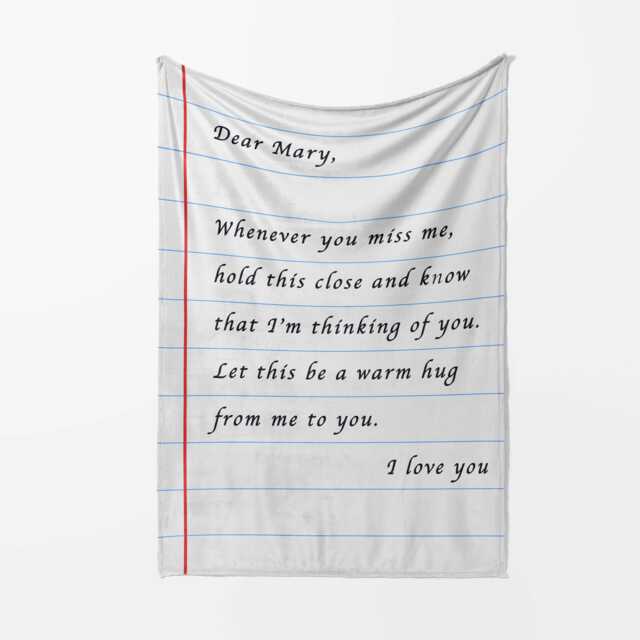 Dear Mary,
Whenever you miss me,
hold this close and know
that I'm thinking of you.
Let this be a warm hug
from me to you.
I love you